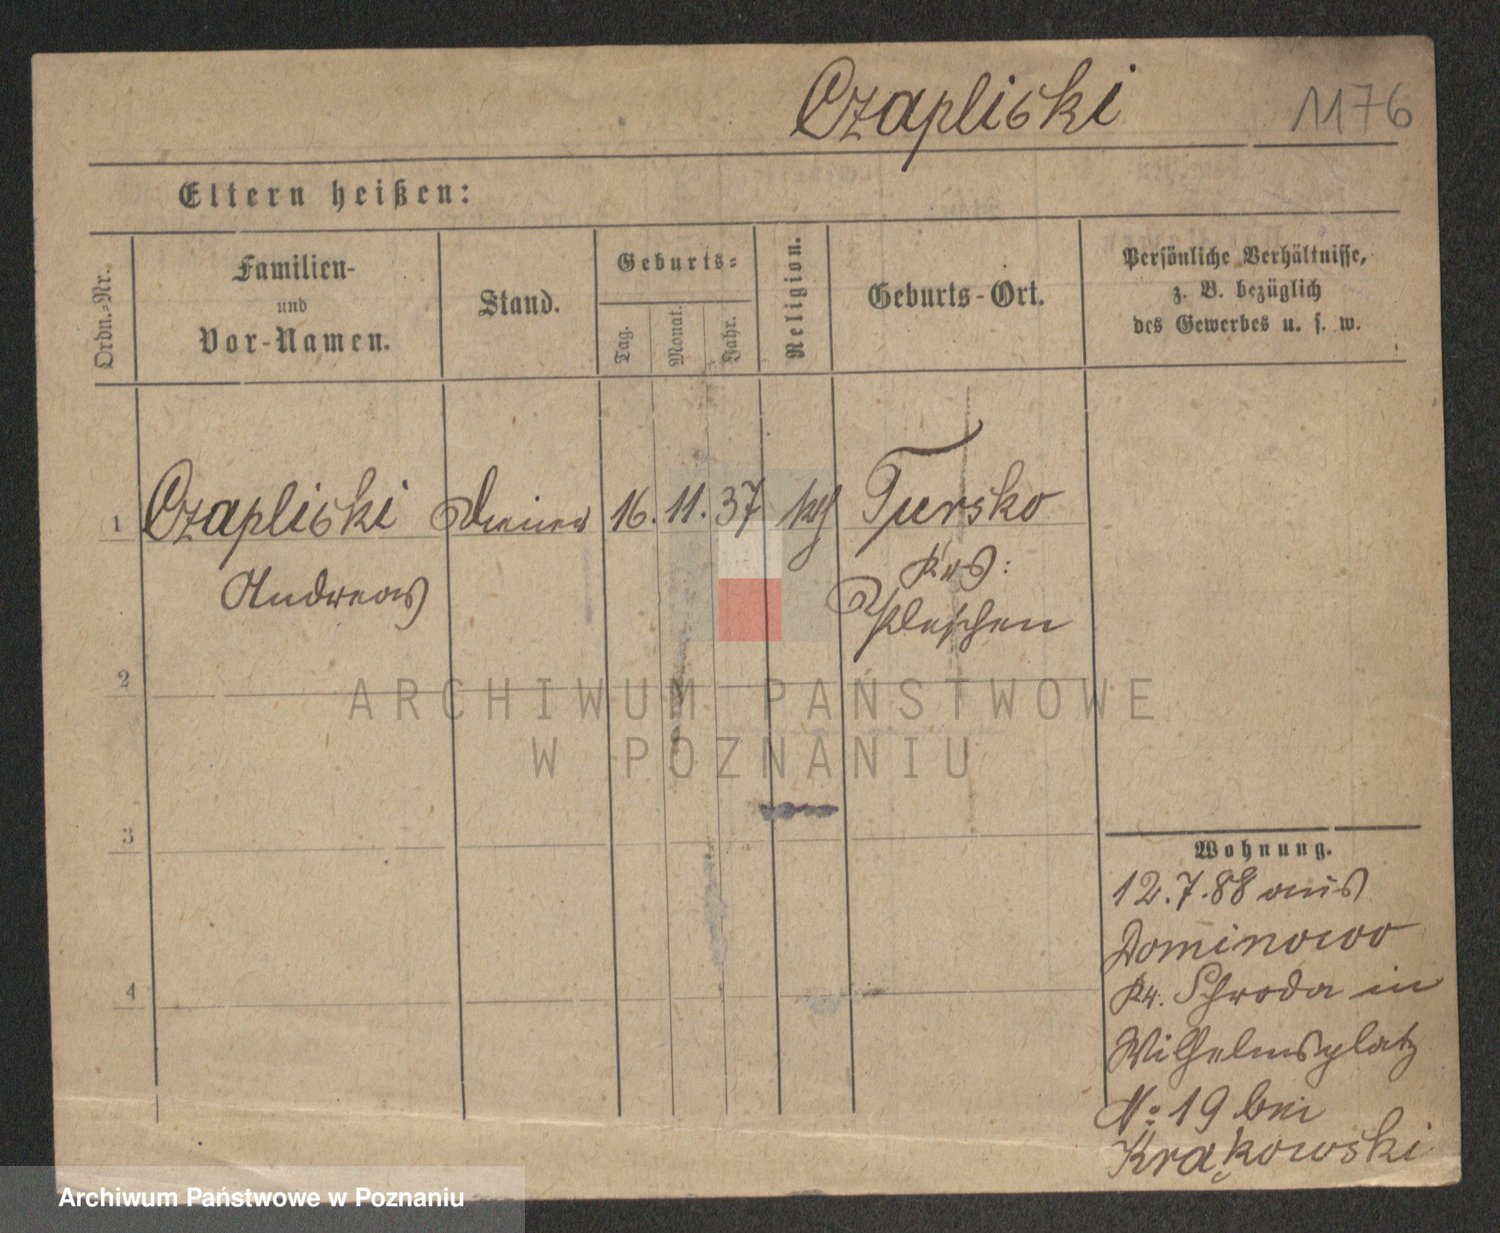 Czapliski 1176
Eltern heißen:
Ordn.-Nr.
Familien-
und
Vor-Namen.
Stand.
Geburts-
Tag.
Monat.
Jahr.
Religion.
Geburts-Ort.
Persönliche Verhältnisse,
z. B. bezüglich
des Gewerbes u. s. w.
1 Czapliski Diener 16. 11. 37 kth Tursko
Andreas Krs:
Pleschen
2
3
4
Wohnung.
12.7.88 aus
Dominowo
Kr. Schroda in
Wilhelmsplatz
No 19 bei
Krakowski
ARCHIWUM PAŃSTWOWE
W POZNANIU
Archiwum Państwowe w Poznaniu